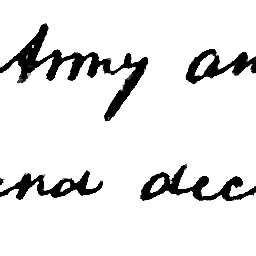 Army an
and dec